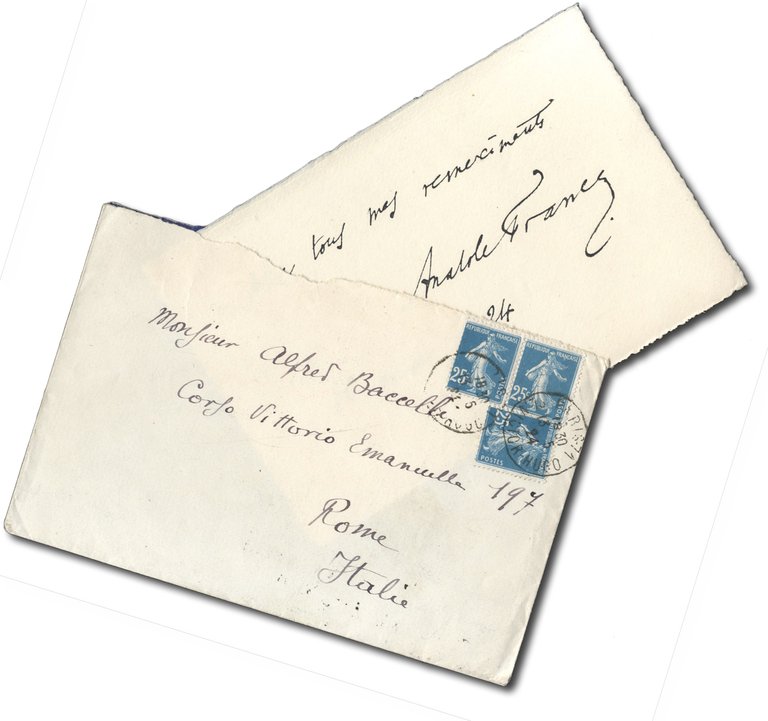 tous mes remerciments
Anatole France
24
Monsieur Alfred Baccelli
Corso Vittorio Emanuelle 197
Rome
Italie
REPUBLIQUE FRANÇAISE
25c
POSTES
REPUBLIQUE FRANÇAISE
25c
POSTES
25c
POSTES